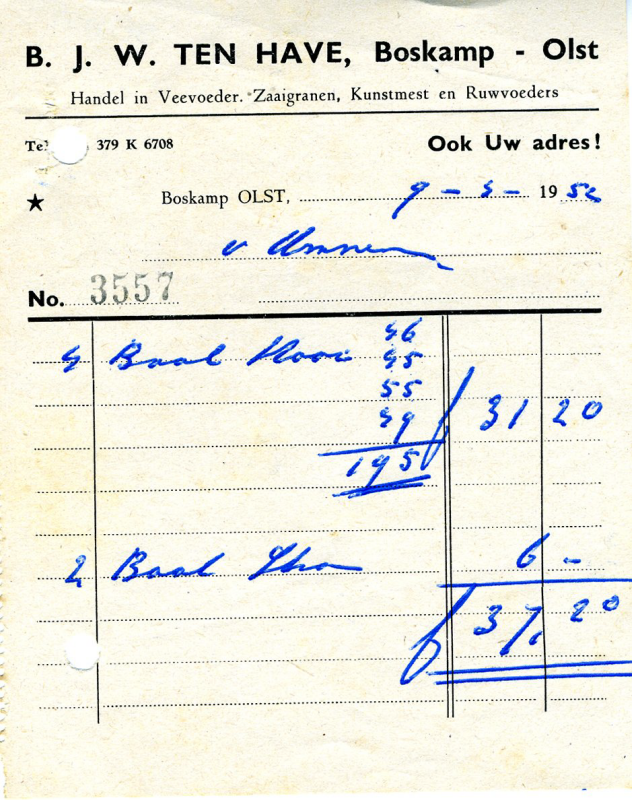 B. J. W. TEN HAVE, Boskamp - Olst
Handel in Veevoeder. Zaaigranen, Kunstmest en Ruwvoeders
Tel 379 K 6708
Ook Uw adres!
Boskamp OLST, 9 - 5 - 1952
No. 3557
46
4 Baal 45
55
49
195
f 31 20
2 Baal 6 -
f 37, 20